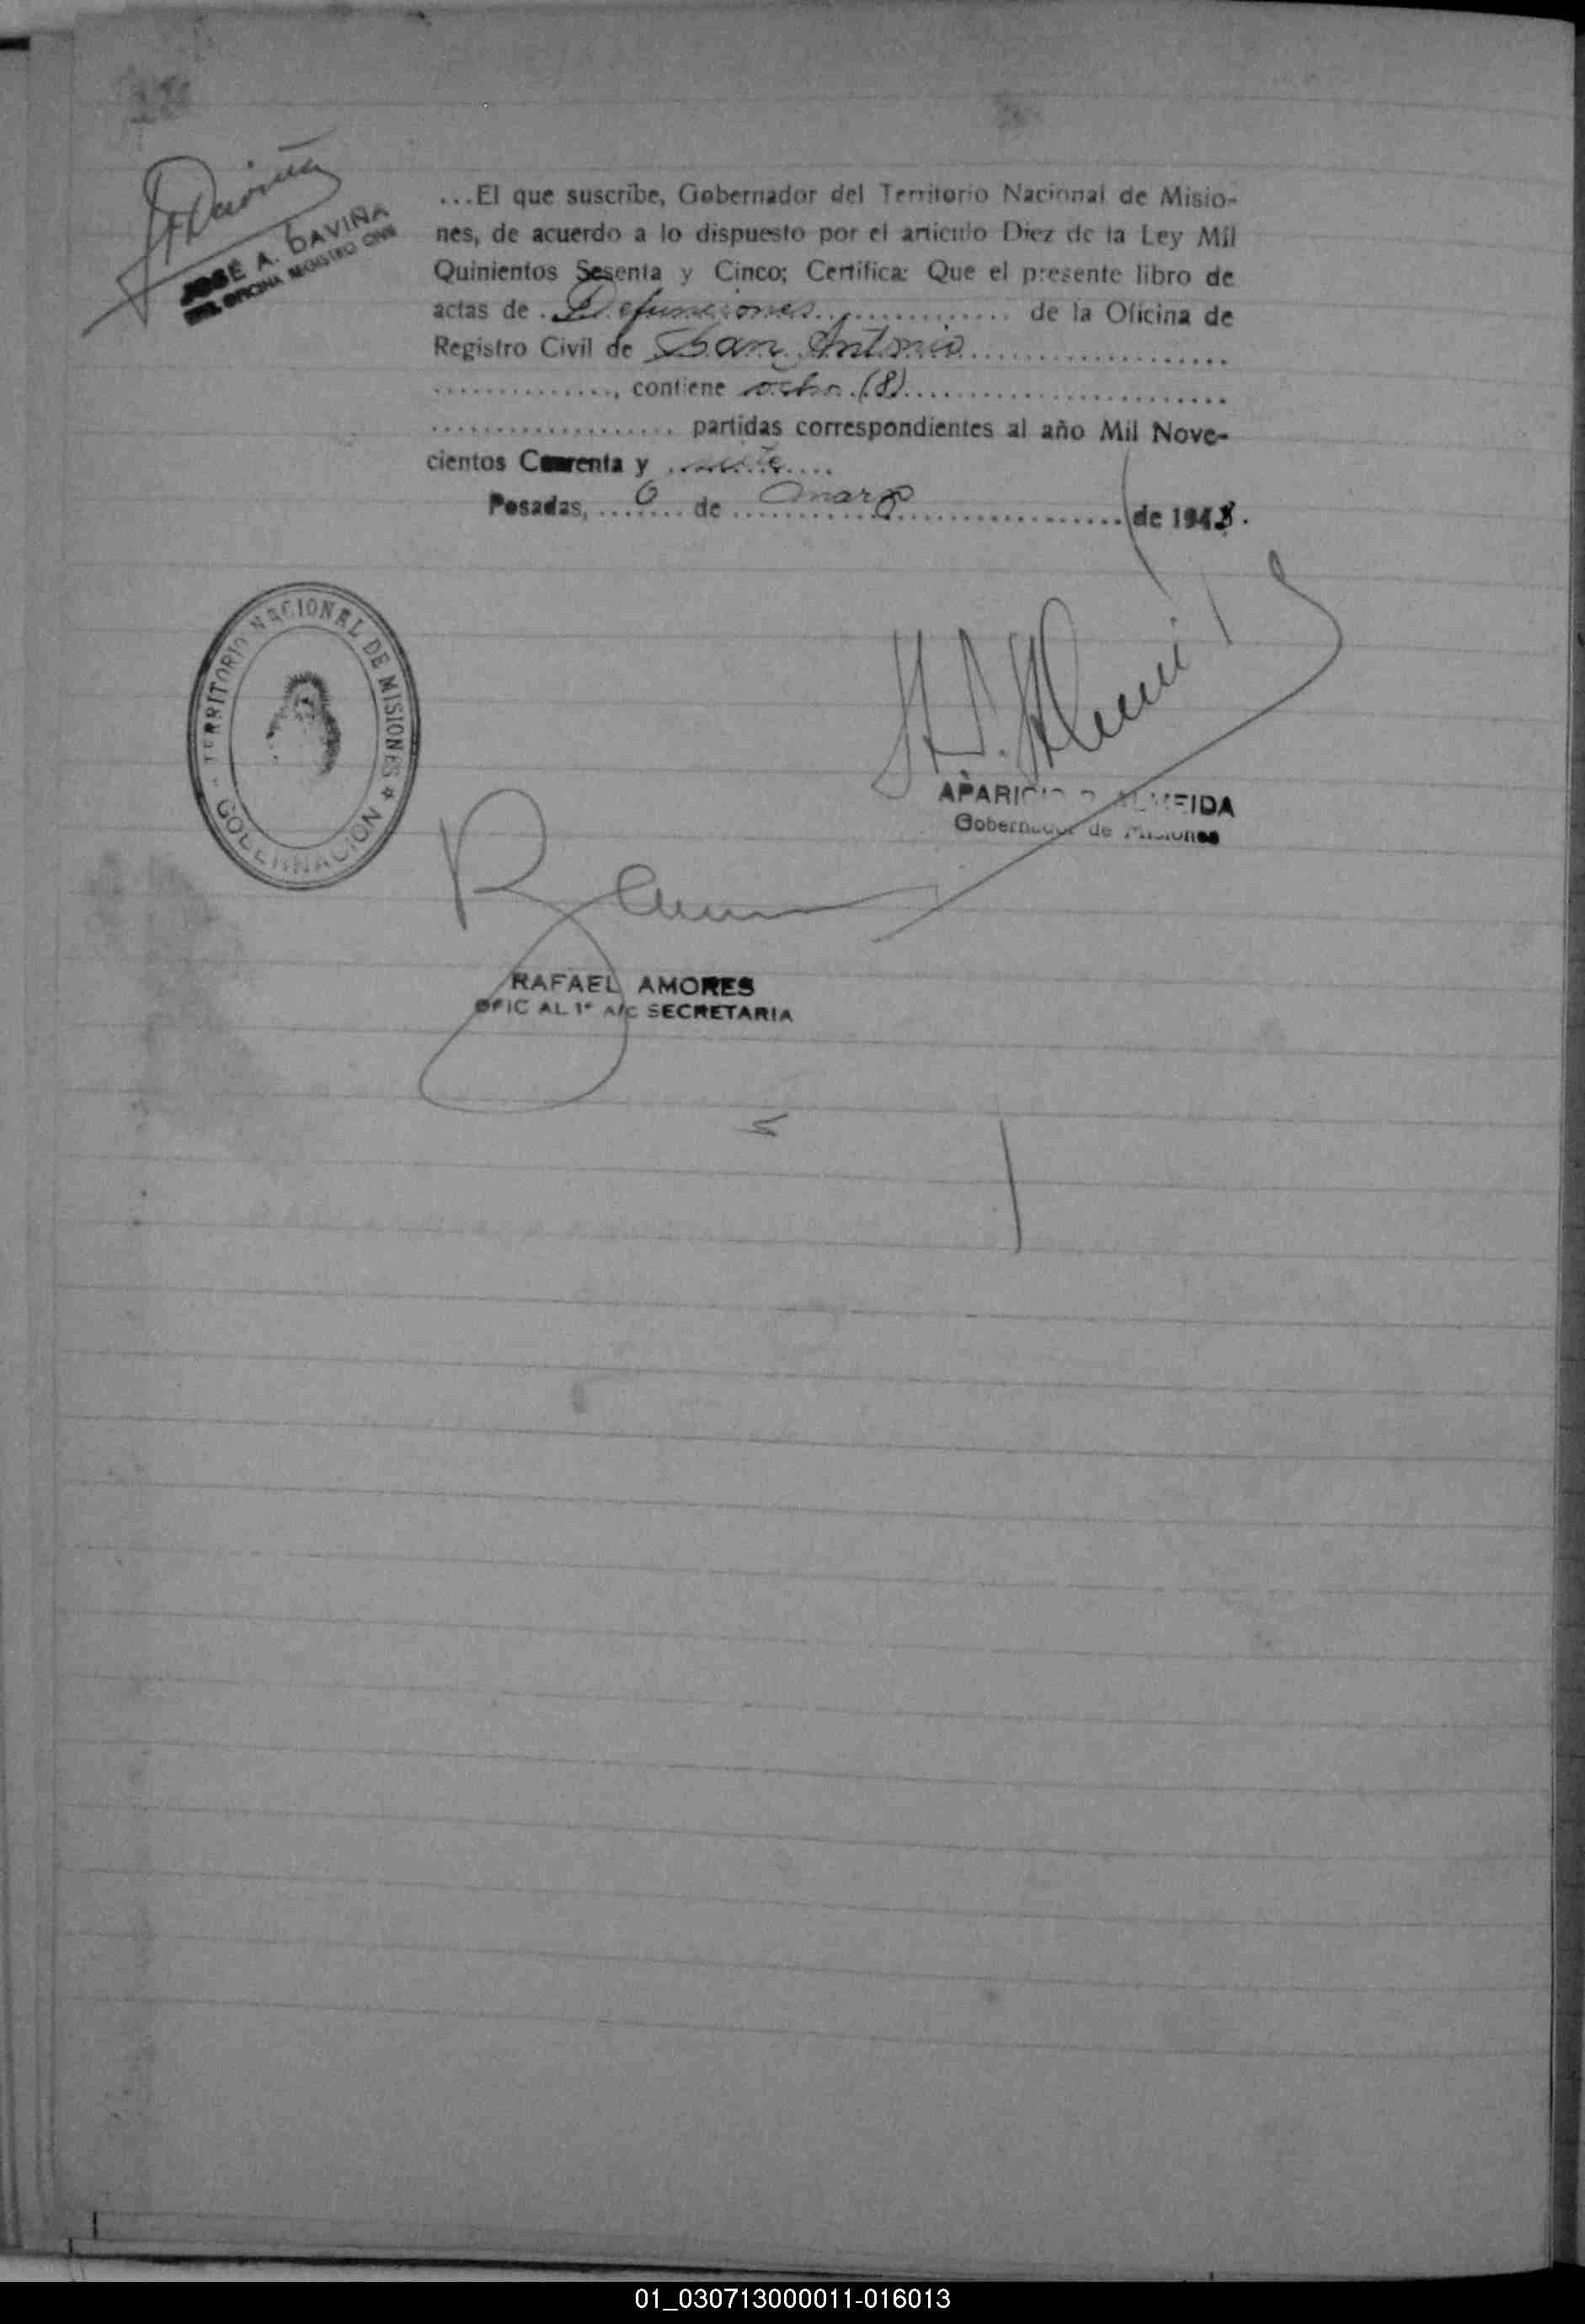 JDaviña
JOSÉ A. DAVIÑA
OFICINA REGISTRO CIVIL
...El que suscribe, Gobernador del Territorio Nacional de Misio-
nes, de acuerdo a lo dispuesto por el artículo Diez de la Ley Mil
Quinientos Sesenta y Cinco; Certifica: Que el presente libro de
actas de Defunciones de la Oficina de
Registro Civil de San Antonio
, contiene ocho (8)
partidas correspondientes al año Mil Nove-
cientos Cuarenta y siete
Posadas, 6 de marzo de 1948.
TERRITORIO NACIONAL DE MISIONES
GOBERNACION
APARICIO ALMEIDA
Gobernador de Misiones
RAFAEL AMORES
OFICIAL 1° A/C SECRETARIA
01_030713000011-016013